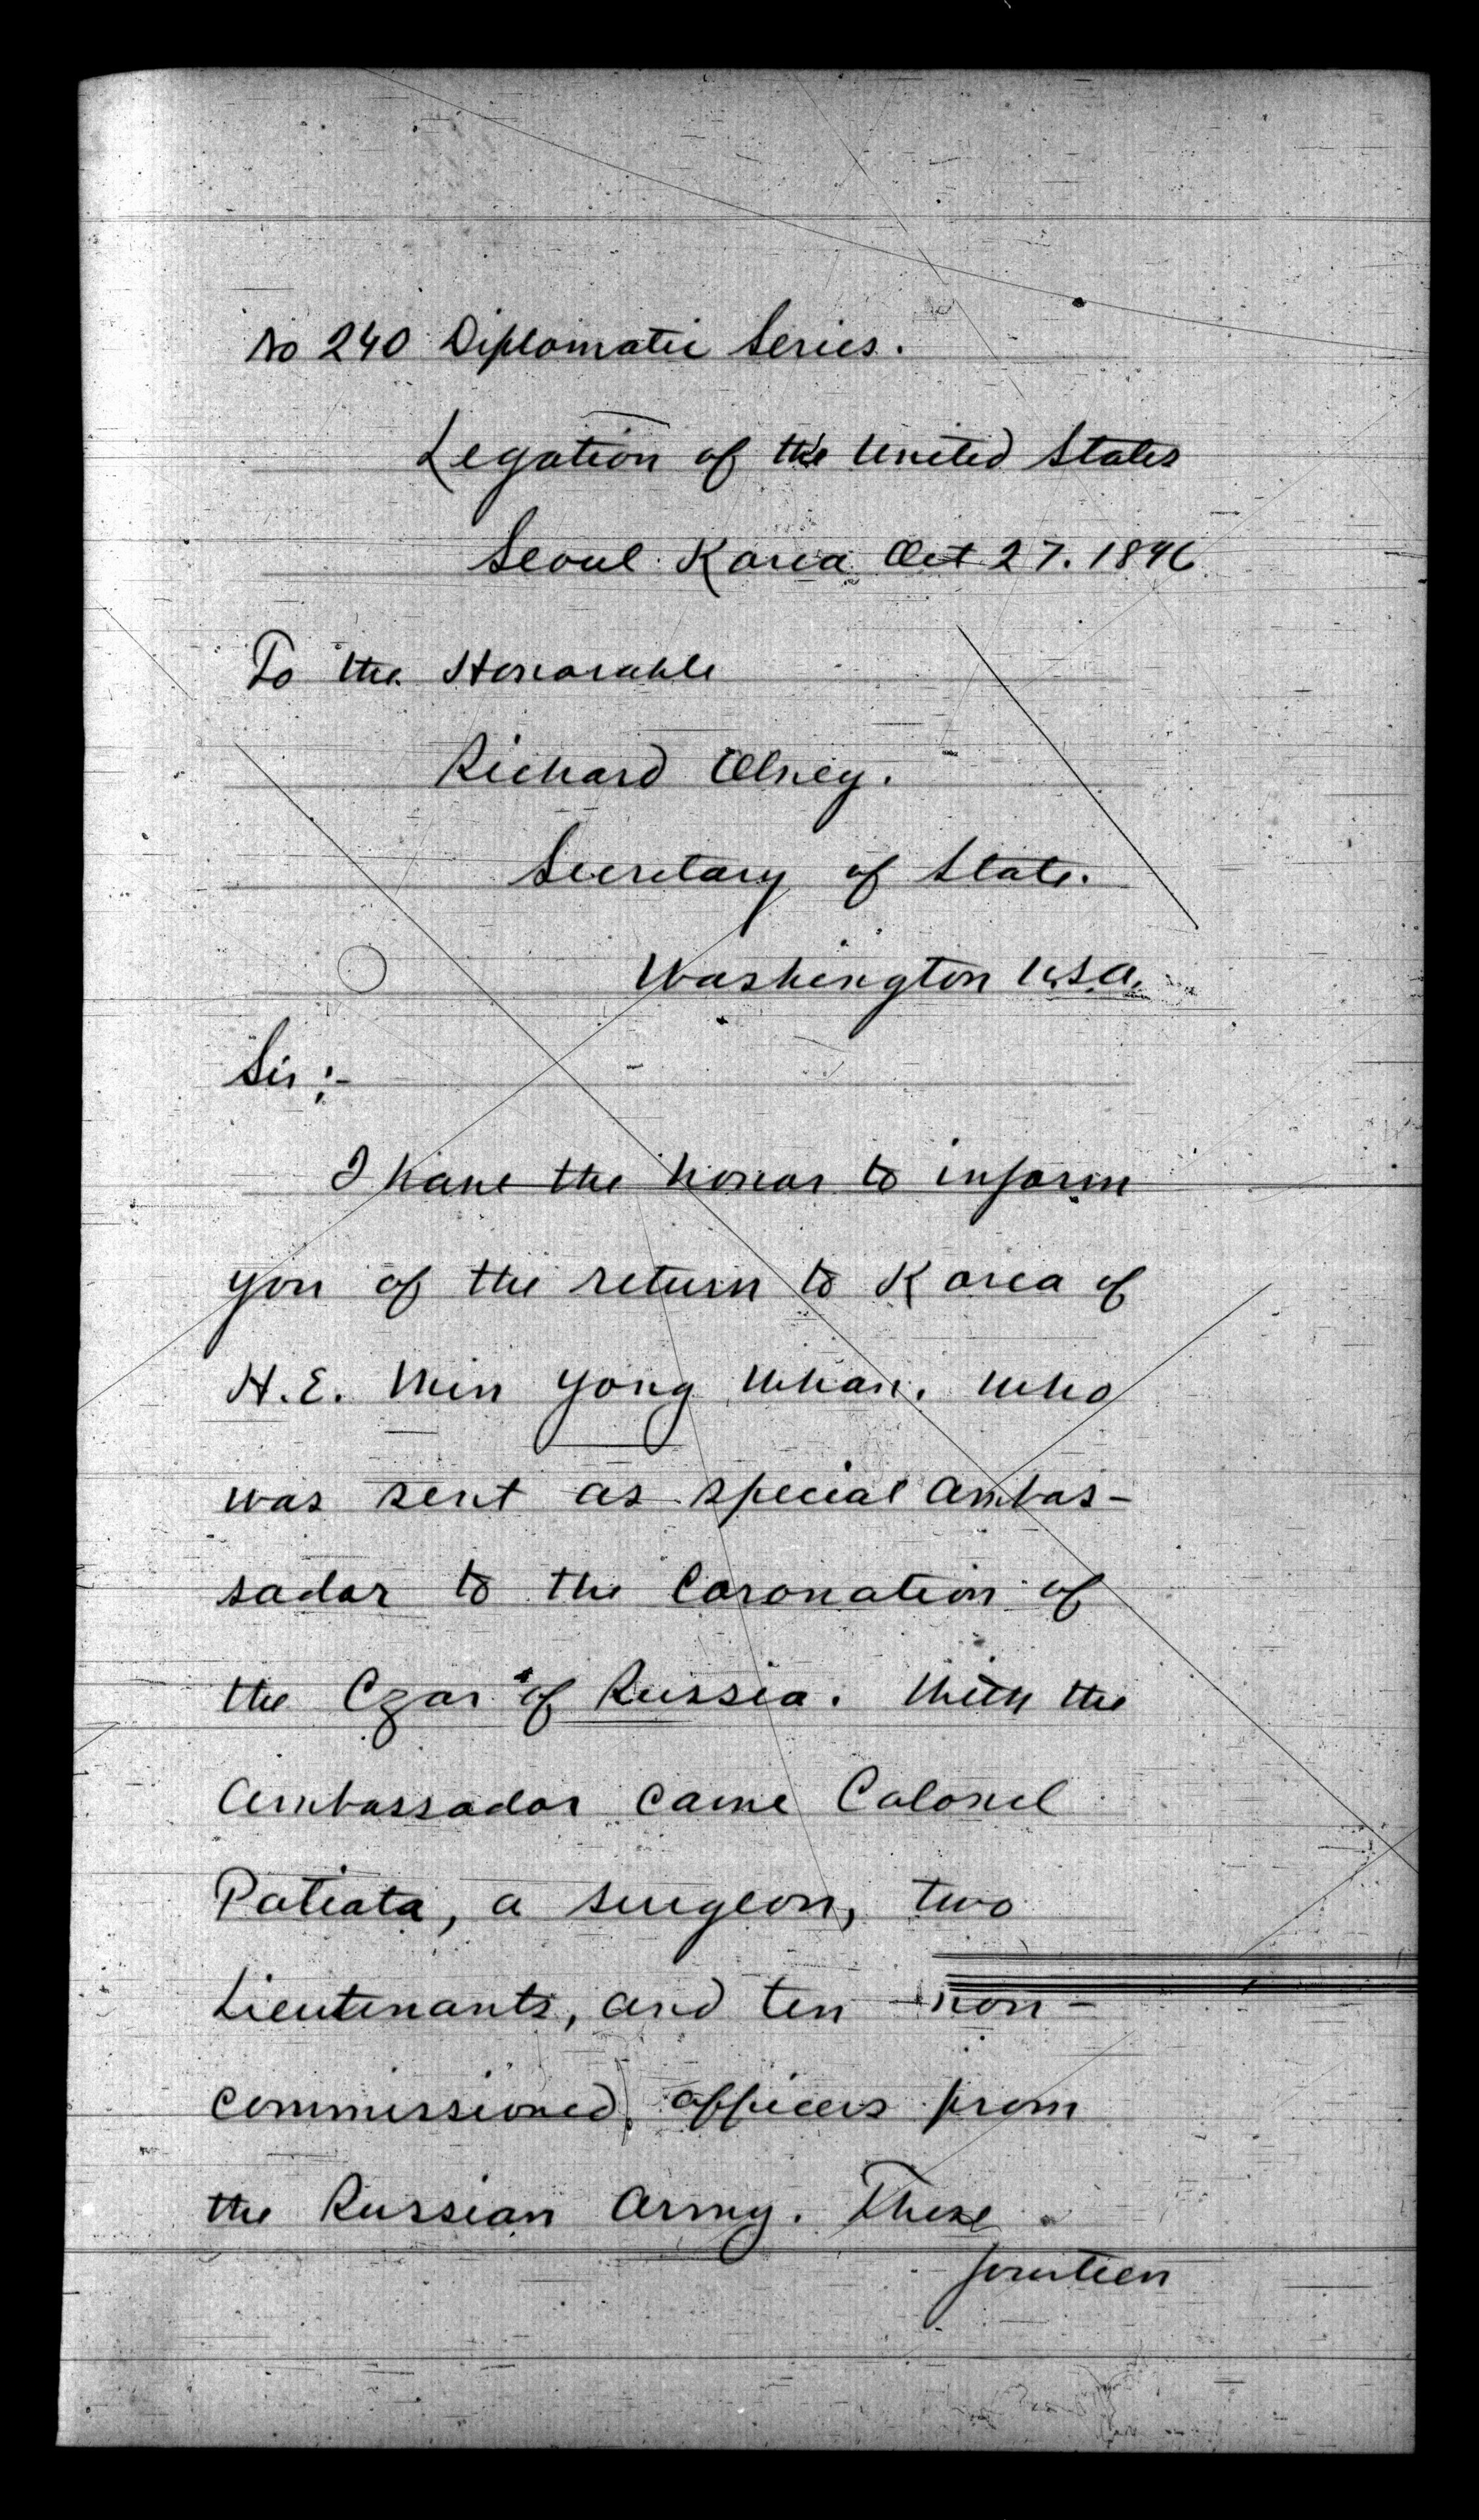 No 240 Diplomatic Series.
Legation of the United States
Seoul Korea Oct 27. 1896
To the Honorable
Richard Olney.
Secretary of State.
Washington U.S.A.
Sir:-
I have the honor to inform
you of the return to Korea of
H.E. Min Yong Whan. who
was sent as special Ambas-
sador to the Coronation of
the Czar of Russia. With the
Ambassador came Colonel
Patiata, a surgeon, two
Lieutenants, and ten non-
commissioned officers from
the Russian Army. These
fourteen